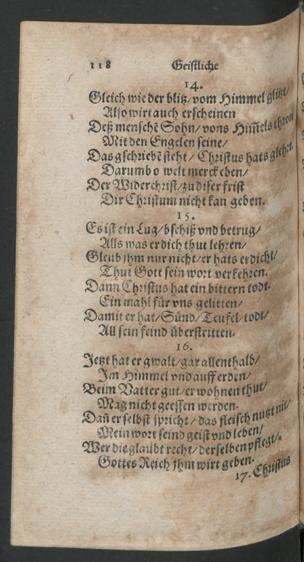 118 Geistliche
14.
Gleich wie der blitz/vom Himmel glitzt/
Also wirt auch erscheinen
Deß menschẽ Sohn/vons Him̃els thron
Mit den Engelen seine/
Das gschriebẽ steht/Christus hats glehrt.
Darumb o welt merck eben/
Der Widerchrist/zu diser frist
Dir Christum nicht kan geben.
15.
Es ist ein Lug/bschiß vnd betrug/
Alls was er dich thut lehren/
Gleub jhm nur nicht/er hats erdicht/
Thut Gott sein wort verkehren.
Dann Christus hat ein bittern todt.
Ein mahl für vns gelitten/
Damit er hat/Sünd/Teufel/todt/
All sein feind überstritten.
16.
Jetzt hat er gwalt/gar allenthalb/
Im Himmel vnd auff erden/
Beim Vatter gut/er wohnen thut/
Mag nicht geessen werden.
Dañ er selbst spricht/das fleisch nutzt nit/
Mein wort seind geist vnd leben/
Wer die glaubt recht/derselben pflegt/
Gottes Reich jhm wirt geben.
17. Christus